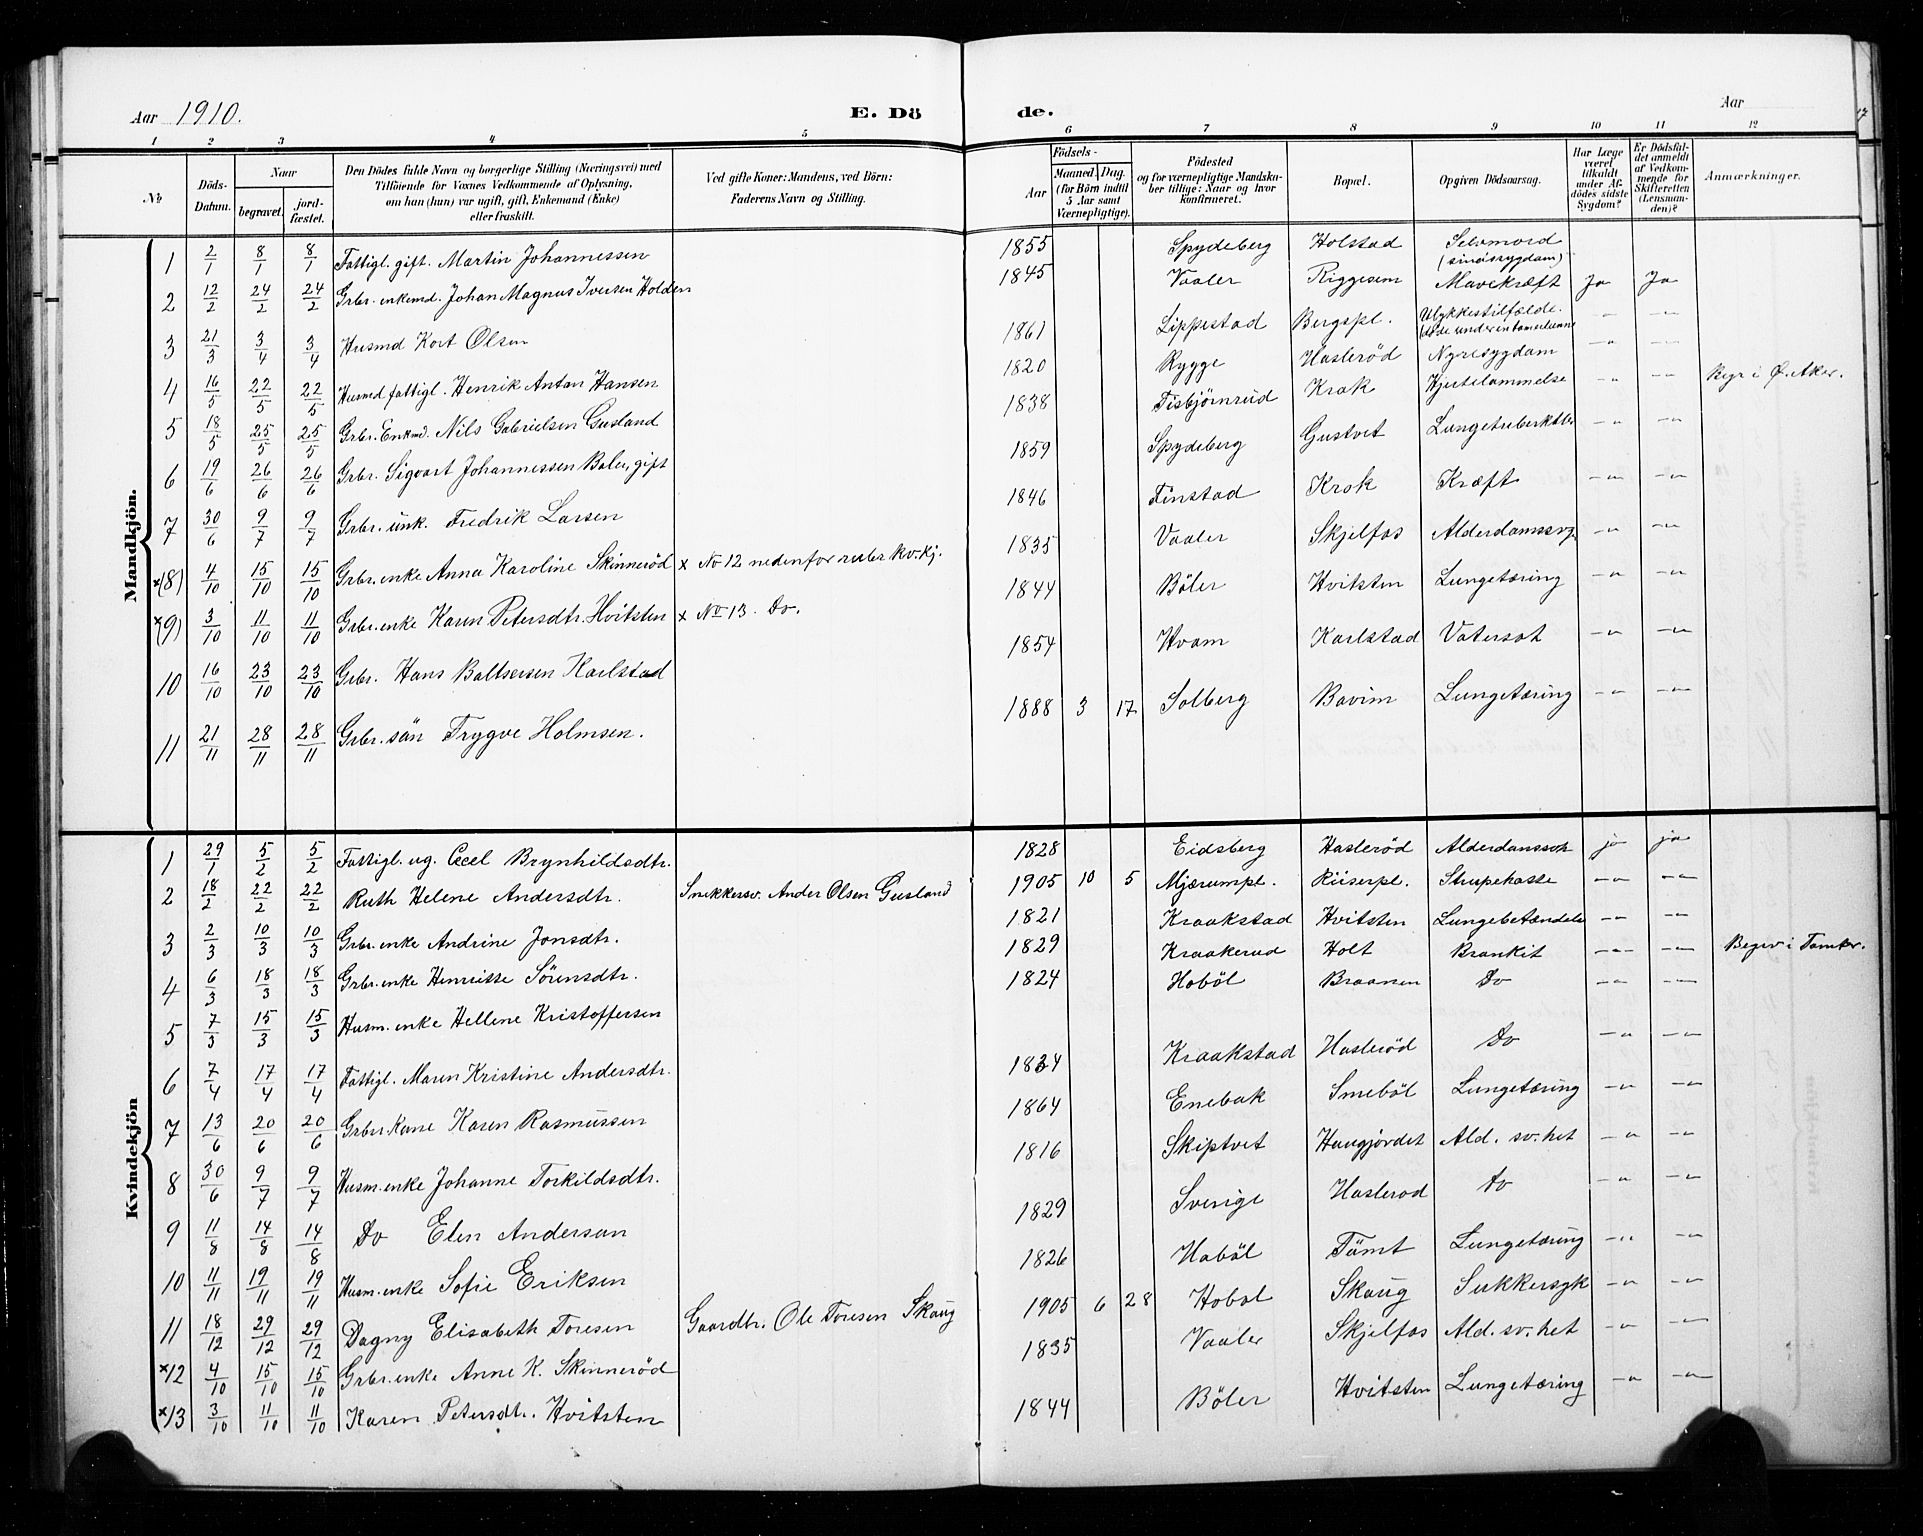 Aar 1910.
E. Dö de.
Aar
1 2 3 4 5 6 7 8 9 10 11 12
№
Döds-Datum.
Naar
begravet.
jordfæstet.
Den Dödes fulde Navn og borgerlige Stilling (Næringsvei) med Tilföiende for Voxnes Vedkommende af Oplysning, om han (hun) var ugift, gift, Enkemand (Enke) eller fraskilt.
Ved gifte Koner: Mandens, ved Börn: Faderens Navn og Stilling.
Födsels-
Aar
Maaned. Dag.
(for Börn indtil 5 Aar samt Værnepligtige).
Födested og for værnepligtige Mandskaber tillige: Naar og hvor konfirmeret.
Bopæl.
Opgiven Dödsaarsag.
Har Læge været tilkaldt under Afdödes sidste Sygdom?
Er Dödsfaldet anmeldt af Vedkommende for Skifteretten (Lensmanden)?
Anmærkninger.
Mandkjön.
1 2/1 8/1 8/1 Fattigl. gift. Martin Johannessen 1855 Spydeberg Holstad Selvmord (sindssygdom)
2 12/2 24/2 24/2 Grbr. enkemd. Johan Magnus Iversen Holden 1845 Vaaler Riggesem Mavekræft Ja Ja
3 21/3 3/4 3/4 Husmd Kort Olsen 1861 Lippestad Bergspl. Ulykkestilfælde. -"- -"-
4 16/5 22/5 22/5 Husmd fattigl. Henrik Anton Hansen 1820 Rygge Haslerød Nyresygdom -"- -"-
5 18/5 25/5 25/5 Grbr. Enkmd. Nils Gabrielsen Gusland 1838 Tisbjørnrud Krok Hjertelammelse -"- -"- Begr i Ø. Aker.
6 19/6 26/6 26/6 Grbr. Sigvart Johannessen Boler, gift 1859 Spydeberg Gustvet Lungetuberkler -"- -"-
7 30/6 9/7 9/7 Grbr. unk. Fredrik Larsen 1846 Finstad Krok Kræft -"- -"-
×(8) 4/10 15/10 15/10 Grbr. enke Anna Karoline Skinnerød × No 12 nedenfor under kv.kj. 1835 Vaaler Skjelfos Alderdomssv. -"- -"-
×(9) 3/10 11/10 11/10 Grbr. enke Karen Petersdtr. Hvitsten × No 13. Do. 1844 Böler Hvitsten Lungetæring -"- -"-
10 16/10 23/10 23/10 Grbr. Hans Baltsersen Karlstad 1854 Hvam Karlstad Vatersot -"- -"-
11 21/11 28/11 28/11 Grbr. sön Trygve Holmsen. 1888 3 17 Solberg Bovim Lungetæring -"- -"-
Kvindekjön
1 29/1 5/2 5/2 Fattigl. ug. Cecel Brynhildsdtr. 1828 Eidsberg Haslerød Alderdomssvk ja ja
2 18/2 22/2 22/2 Ruth Helene Andersdtr. Snekkersv. Ander Olsen Gusland 1905 10 5 Mjærumpl. Riiserpl. Strupehoste -"- -"-
3 2/3 10/3 10/3 Grbr. enke Andrine Jonsdtr. 1821 Kraakstad Hvitsten Lungebetændelse -"- -"-
4 6/3 18/3 18/3 Grbr. enke Henrisse Sörensdtr. 1829 Kraakerud Holt Bronkit -"- -"- Begrv i Tomter.
5 7/3 15/3 15/3 Husm. enke Hellene Kristoffersen 1824 Hoböl Braanen Do -"- -"-
6 7/4 17/4 17/4 Fattigl. Maren Kristine Andersdtr. 1834 Kraakstad Haslerød Do -"- -"-
7 13/6 20/6 20/6 Grbr. kone Karen Rasmussen 1864 Enebak Smeböl Lungetæring -"- -"-
8 30/6 9/7 9/7 Husm. enke Johanne Torkildsdtr. 1816 Skiptvet Haugjördet Ald. sv. het -"- -"-
9 11/8 14/8 14/8 Do Elen Anderson 1829 Sverige Haslerod Do -"- -"-
10 11/11 19/11 19/11 Husm. enke Sofie Eriksen 1826 Hoböl Tömt Lungetæring -"- -"-
11 18/12 29/12 29/12 Dagny Elisabeth Toresen Gaardbr. Ole Toresen Skaug 1905 6 28 Hobol Skaug Sukkersyk -"- -"-
×12 4/10 15/10 15/10 Grbr. enke Anne K. Skinneröd 1835 Vaaler Skjelfos Ald. sv. het -"- -"-
×13 3/10 11/10 11/10 Karen Petersdtr. Hvitsten 1844 Böler Hvitsten Lungetæring -"- -"-